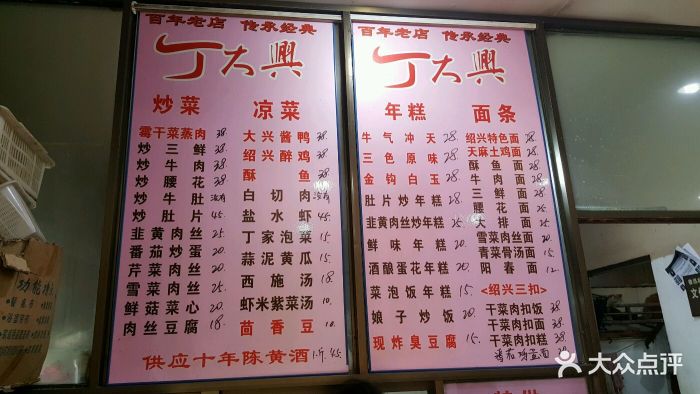 百年老店 传承经典
丁大興
炒菜
霉干菜蒸肉 38.
炒三鲜 38.
炒牛肉 38.
炒腰花 38.
炒牛肚 没有
炒肚片 45.
韭黄肉丝 25.
番茄炒蛋 20.
芹菜肉丝 20.
雪菜肉丝 25.
鲜菇菜心 20.
肉丝豆腐 18.
凉菜
大兴酱鸭 38.
绍兴醉鸡 38.
酥鱼 38.
白切肉 没有
盐水虾 45.
丁家泡菜 15.
蒜泥黄瓜 15.
西施汤 18.
虾米紫菜汤 10.
茴香豆 10.
供应十年陈黄酒 1斤 45.
百年老店 传承经典
丁大興
年糕
牛气冲天 28.
三色原味 28.
金钩白玉 28.
肚片炒年糕 28.
韭黄肉丝炒年糕 25.
鲜味年糕 20.
酒酿蛋花年糕 20.
菜泡饭年糕 15.
娘子炒饭 20.
现炸臭豆腐 15.
面条
绍兴特色面 28.
天麻土鸡面 28.
酥鱼面 28.
牛肉面 28.
三鲜面 28.
腰花面 25.
大排面 25.
雪菜肉丝面 20.
青菜骨汤面 15.
阳春面 12.
<绍兴三扣>
干菜肉扣饭 38.
干菜肉扣面 38.
干菜肉扣糕 38.
大众点评